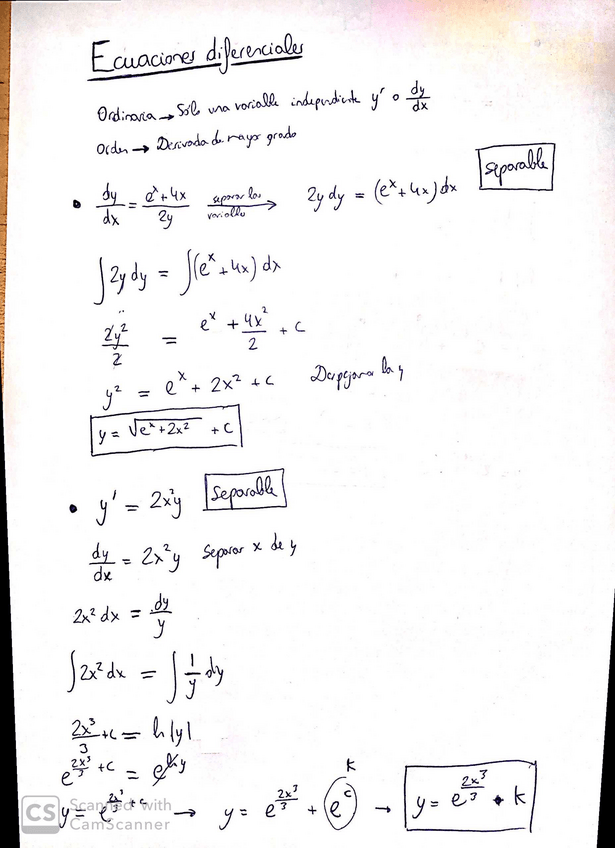 Ecuaciones diferenciales
Ordinaria → Sólo una variable independiente y' o dy/dx
Orden → Derivada de mayor grado
Separable
• dy/dx = (e^x + 4x)/2y separar las variables → 2y dy = (e^x + 4x) dx
∫ 2y dy = ∫ (e^x + 4x) dx
2y²/2 = e^x + 4x²/2 + C
y² = e^x + 2x² + C Despejamos la y
y = √(e^x + 2x²) + C
• y' = 2x²y Separable
dy/dx = 2x²y Separar x de y
2x² dx = dy/y
∫ 2x² dx = ∫ 1/y dy
2x³/3 + C = ln|y|
e^(2x³/3 + C) = e^(ln y)
K
y = e^(2x³/3 + C) → y = e^(2x³/3) + e^C → y = e^(2x³/3) • K
CS Scanned with
CamScanner